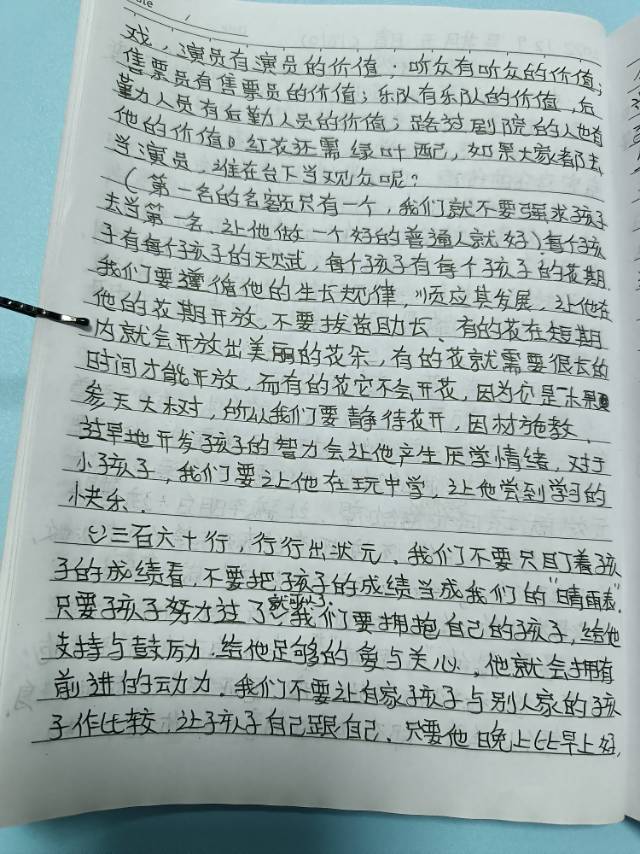 戏，演员有演员的价值；听众有听众的价值；
售票员有售票员的价值；乐队有乐队的价值，后
勤人员有后勤人员的价值；路过剧院的人也有
他的价值。红花还需绿叶配，如果大家都去
当演员，谁在台下当观众呢？
（第一名的名额只有一个，我们就不要强求孩子
去当第一名，让他做一个好的普通人就好）每个孩
子有每个孩子的天赋，每个孩子有每个孩子的花期.
我们要遵循他的生长规律，顺应其发展，让他在
他的花期开放，不要拔苗助长、有的花在短期
内就会开放出美丽的花朵，有的花就需要很长的
时间才能开放，而有的花它不会开花，因为它是一棵
参天大树，所以我们要静待花开，因材施教，
过早地开发孩子的智力会让他产生厌学情绪，对于
小孩子，我们要让他在玩中学，让他尝到学习的
快乐.
三百六十行，行行出状元，我们不要只盯着孩
子的成绩看，不要把孩子的成绩当成我们的“晴雨表”.
只要孩子努力过了就可以，我们要拥抱自己的孩子，给他
支持与鼓励，给他足够的爱与关心，他就会拥有
前进的动力，我们不要让自家孩子与别人家的孩
子作比较，让孩子自己跟自己，只要他晚上比早上好，